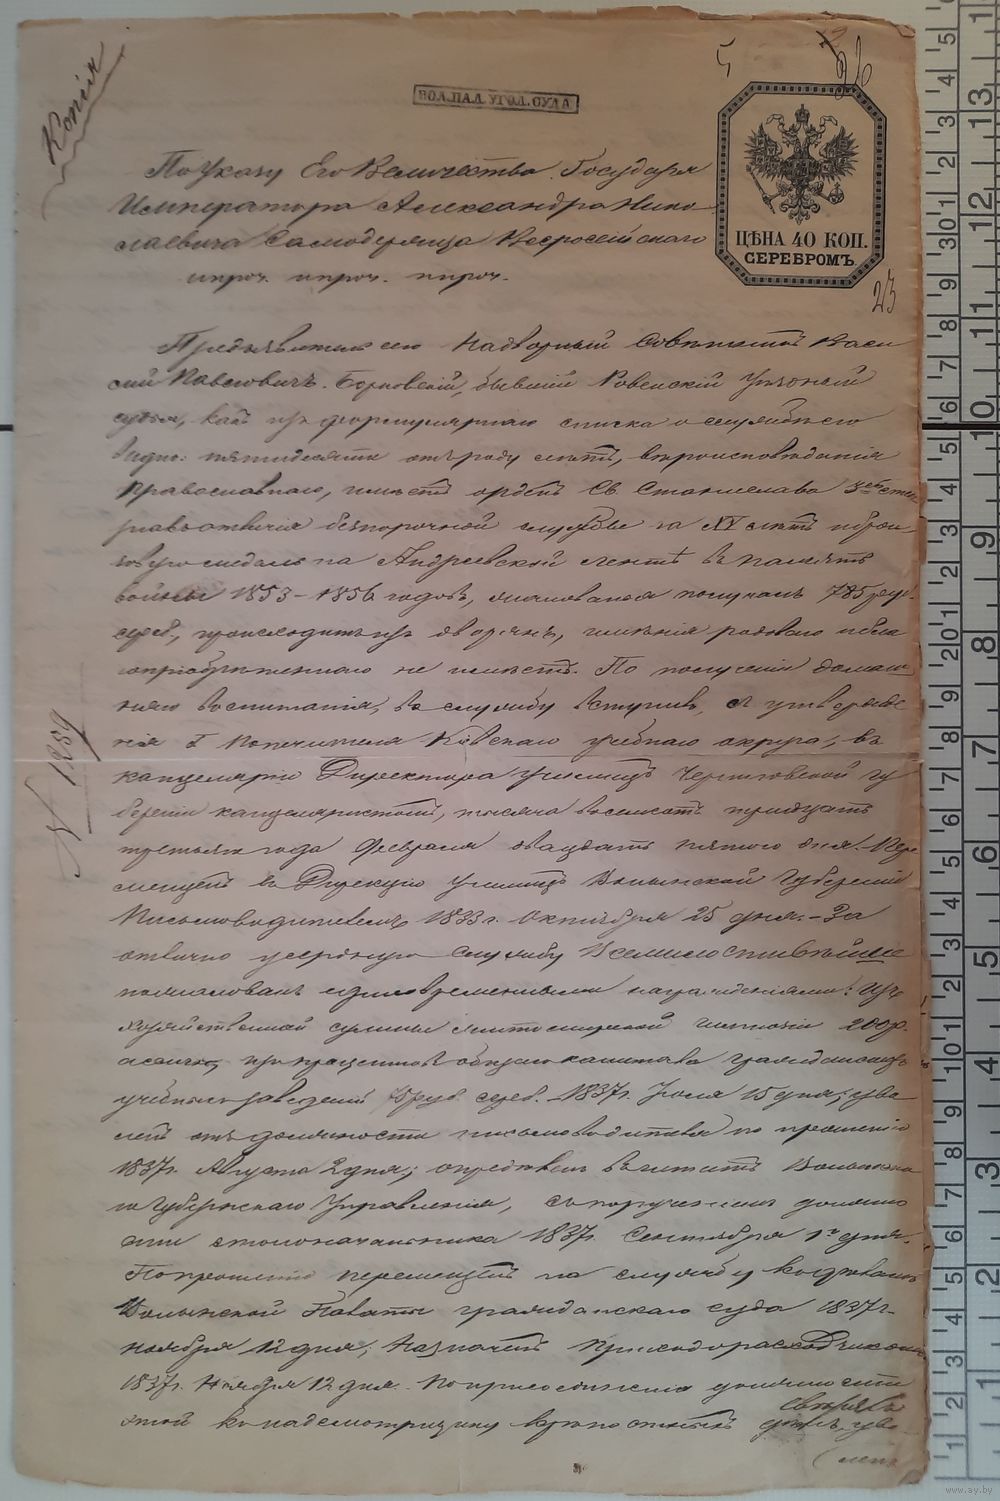 Копія
ВОЛ. ПАЛ. УГОЛ. СУДА
5
26
ЦѢНА 40 КОП.
СЕРЕБРОМЪ.
23
По Указу Его Величества Государя
Императора Александра Нико
лаевича Самодержца Всероссійскаго
ипроч. ипроч. ипроч.
Предъявитель сего Надворный Совѣтникъ Васи
лій Павловичъ Борковскій, бывшій Ровенскій Уѣздный
судья, какъ изъ формулярнаго списка о службѣ его
видно: пятидесяти отъ роду лѣтъ, вѣроисповѣданія
православнаго, имѣетъ орденъ Св. Станислава 3ей степ
знакъ отличія безпорочной службы за XV лѣтъ и брон
зовую медаль на Андреевской лентѣ въ память
войны 1853-1856 годовъ, жалованья получалъ 785 руб.
сереб., происходитъ изъ дворянъ, имѣнія родоваго и бла
гопріобрѣтеннаго не имѣетъ. По полученіи домаш
няго воспитанія, въ службу вступивъ, съ утвержде
нія Г. Попечителя Кіевскаго учебнаго округа, въ
канцелярію Директора училищъ Черниговской гу
берніи канцеляристомъ, тысяча восемсотъ тридцать
третьяго года Февраля двадцать пятого дня. Пере
мѣщенъ въ Дирекцію Училищъ Волынской Губерніи
Письмоводителемъ 1833 г. Октября 25 дня. – За
отлично усердную службу Всемилостивѣйше
пожалованъ единовременными награжденіями: Изъ
хозяйственной суммы Житомирской гимназіи 200 р.
ассигн., изъ процентовъ общаго капитала гражданскихъ
учебныхъ заведеній руб. сереб. 1837 г. Іюля 15 дня; уво
ленъ отъ должности письмоводителя по прошенію
1837 г. Августа 2 дня; опредѣленъ въ штатъ Волынска
го Губернскаго Управленія, съ порученіемъ должно
сти столоначальника 1837 г. Сентября 1го дня.
По прошенію перемѣщенъ на службу въ
Волынской Палаты гражданскаго суда 1837 г.
ноября 12 дня; Назначенъ Приходорасходчикомъ
1837 г. Ноября 12 дня. По присоединеніи должности
этой къ надсмотрщику крѣпостныхъ дѣлъ, уво
сверхъ
ленъ
N 1889
www.ay.by